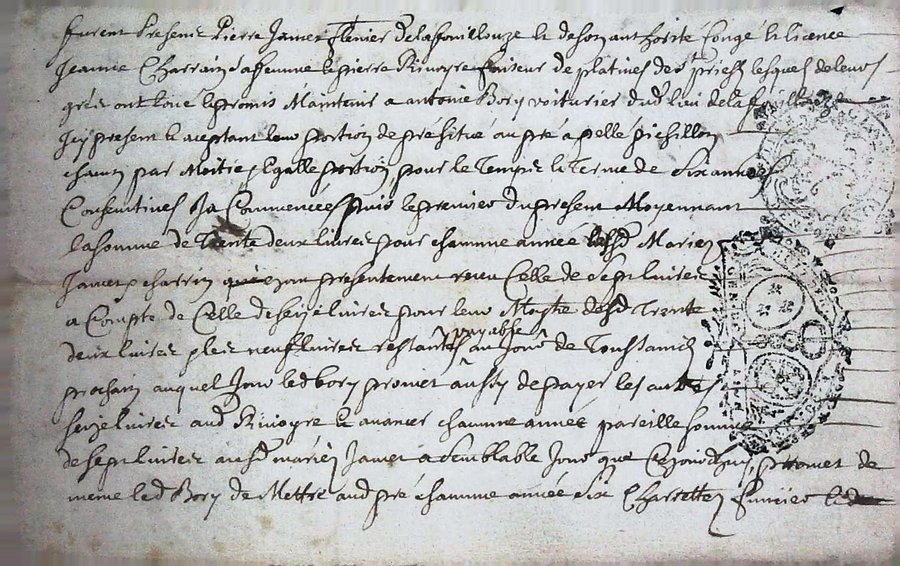 furent Presens Pierre Jamet de lafouillouze et de son authorité congé et licence
Jeanne Charrain sa femme et pierre Rivoyre faiseur de platines de st priest lesquels de leurs
grés ont loué et promis Maintenir a antoine Bory voiturier dud lieu de la fouillouze
Icy present et aceptant leur portion de pré situé au pré apellé pichillon
chacun par Moitié Egalle portion, pour le Temps et Terme de Six années
Consecutives Ja Commencées puis le premier du present Moyennant
la somme de Trente deux livres pour chacunne année lesd Mariés
Jamet charrin ont presentement receu Celle de Sept livres
a Compte de Celle de seize livres pour leur Moitié desd Trente
deux livres les neuf livres restantes payables au Jour de Toussaincts
prochain auquel Jour led bory promet aussy de payer les autres
seize livres aud Rivoyre et avancer chacunne année pareille somme
de sept livres ausd mariés Jamet a semblable Jour que Cejourdhuy, promet de
meme led Bory de Mettre aud pré chacunne année six Charrettes fumier